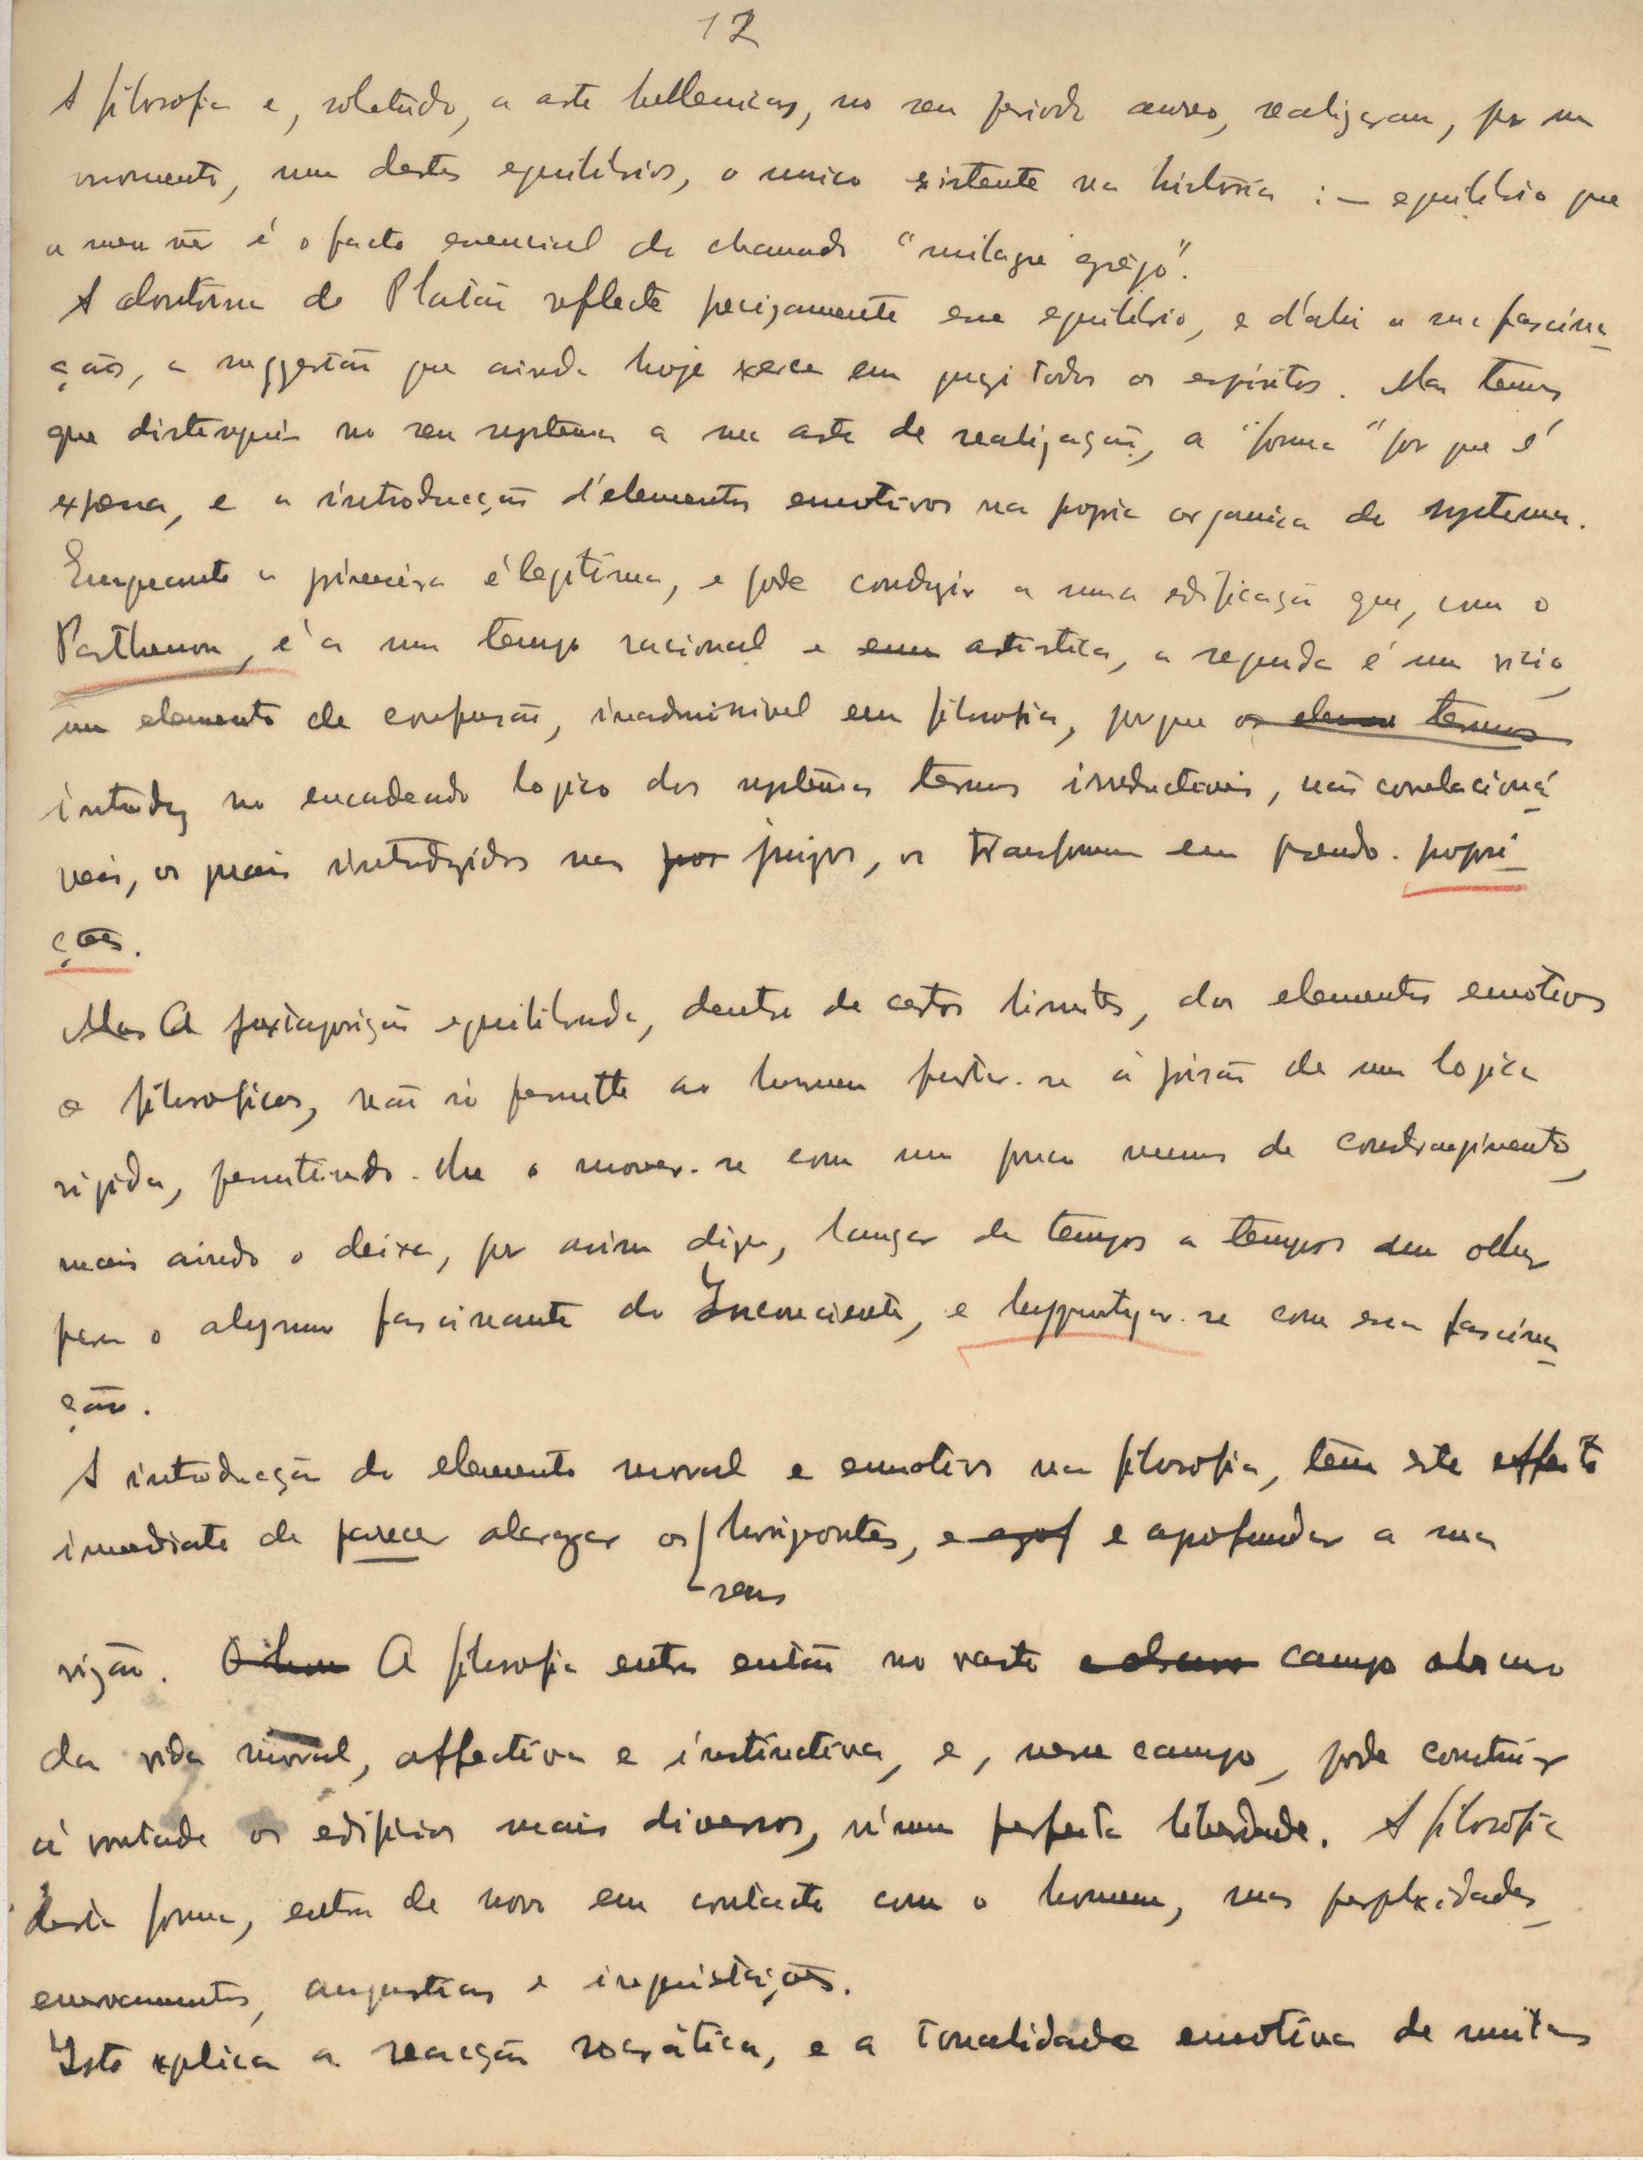 12
A filosofia e, sobretudo, a arte hellenicas, no seu periodo aureo, realizaram, por um
momento, um destes equilibrios, o unico existente na historia : — equilibrio que
a meu vêr é o facto essencial do chamado "milagre grêgo".
A doutrina de Platão reflecte precizamente esse equilibrio, e d'ahi a sua fascina-
ção, a suggestão que ainda hoje exerce em quazi todos os espiritos. Mas temos
que distinguir no seu systema a sua arte de realização, a "forma" por que é
expressa, e a introducção d'elementos emotivos na propria organica do systema.
Emquanto a primeira é legitima, e pode conduzir a uma edificação que, como o
Parthenon, é a um tempo racional e artistica, a segunda é um vicio,
um elemento de confusão, inadmissivel em filosofia, porque os termos
introduz no encadeado logico dos systemas termos irreductiveis, não correlacioná-
veis, os quais introduzidos nos juizos, os transformam em pseudo-proposi-
ções.
Mas A justaposição equilibrada, dentro de certos limites, dos elementos emotivos
e filosoficos, não só permitte ao homem furtar-se á prisão de uma logica
rigida, permitindo-lhe o mover-se com um pouco menos de constrangimento,
mais ainda o deixa, por assim dizer, lançar de tempos a tempos um olhar
para o abysmo fascinante do Inconsciente, e hypnotizar-se com essa fascina-
ção.
A introducção do elemento moral e emotivo na filosofia, têm este effeito
immediato de parecer alargar os horizontes, e aprofundar a sua
seus
vizão. A filosofia entra então no vasto campo obscuro
da vida moral, affectiva e instinctiva, e, nesse campo, pode construir
á vontade os edificios mais diversos, n'uma perfeita liberdade. A filosofia
desta forma, entra de novo em contacto com o homem, suas perplexidades,
enervamentos, angustias e inquietações.
Isto explica a reacção socrática, e a tonalidade emotiva de muitas